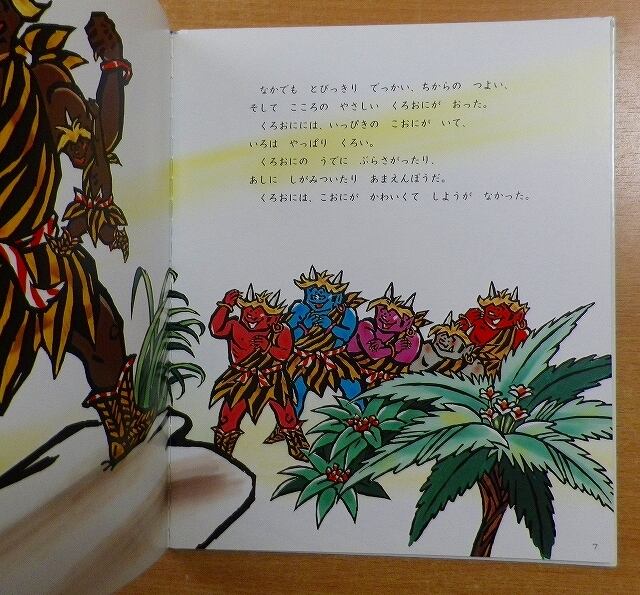 なかでも とびっきり でっかい、ちからの つよい、
そして こころの やさしい くろおにが おった。
くろおにには、いっぴきの こおにが いて、
いろは やっぱり くろい。
くろおにの うでに ぶらさがったり、
あしに しがみついたり あまえんぼうだ。
くろおには、こおにが かわいくて しようが なかった。
7